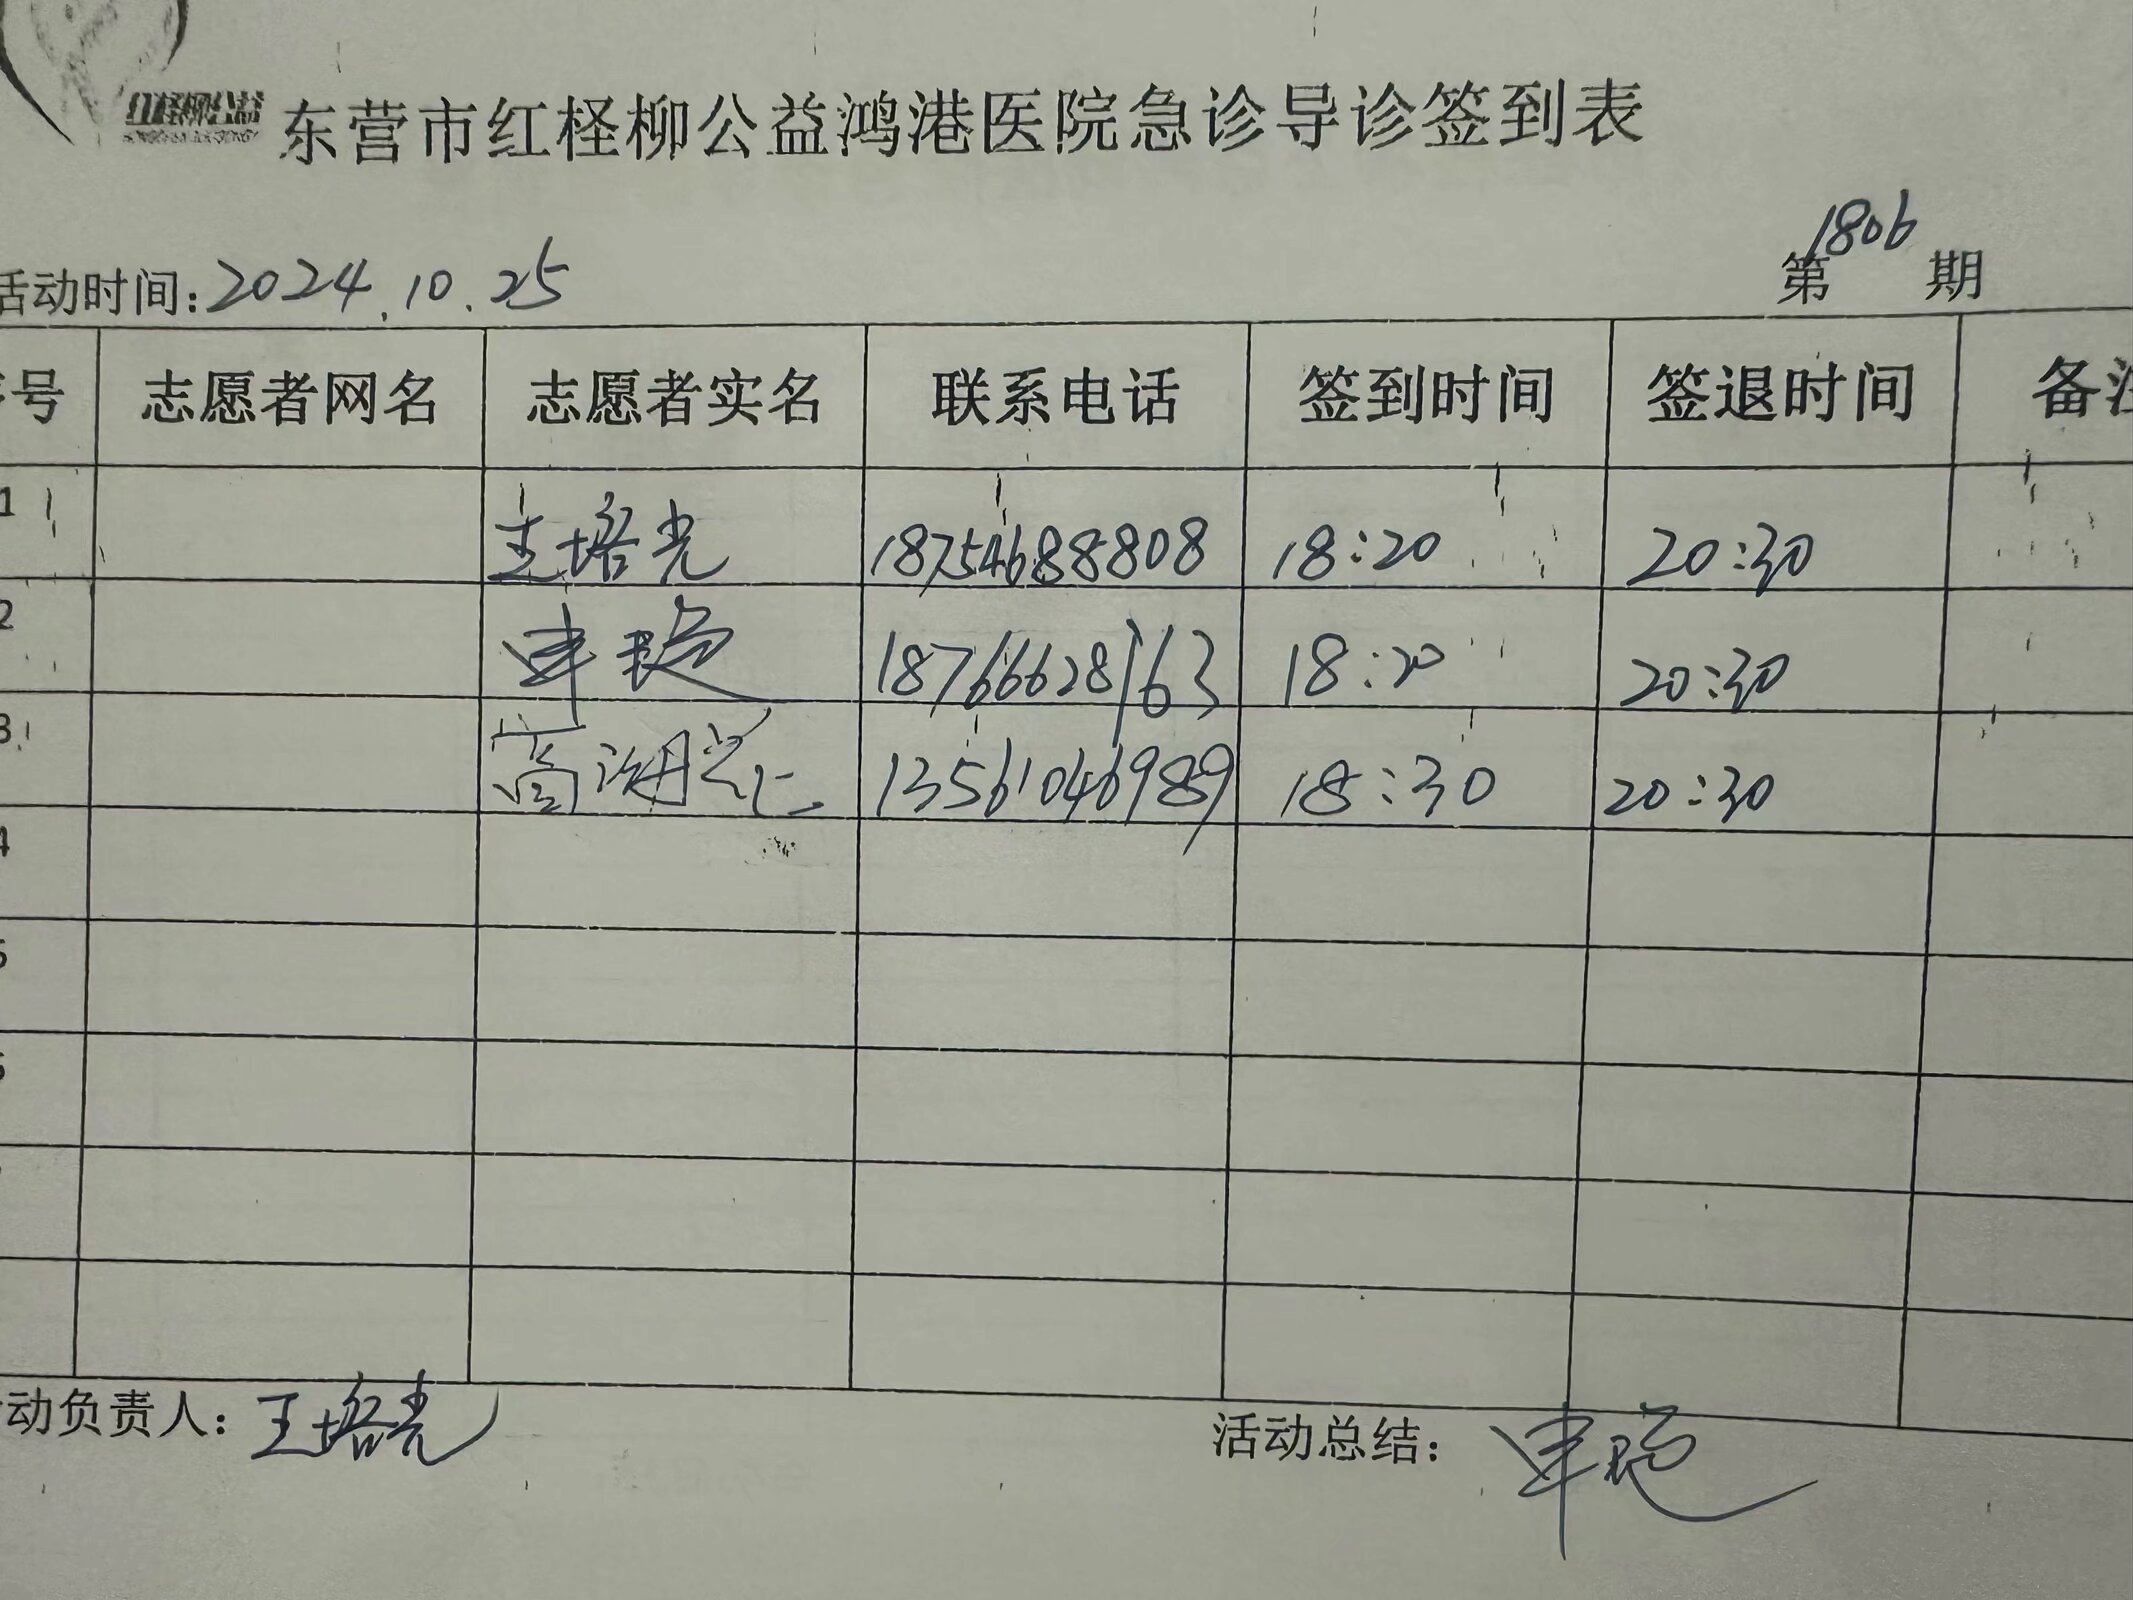 红柽柳公益
东营市红柽柳公益鸿港医院急诊导诊签到表
活动时间:2024.10.25 第1806期
序号 志愿者网名 志愿者实名 联系电话 签到时间 签退时间 备注
1 王培光 18754688808 18:20 20:30
2 18766628163 18:20 20:30
3 13561046989 18:30 20:30
4
5
6
活动负责人:王培光 活动总结: